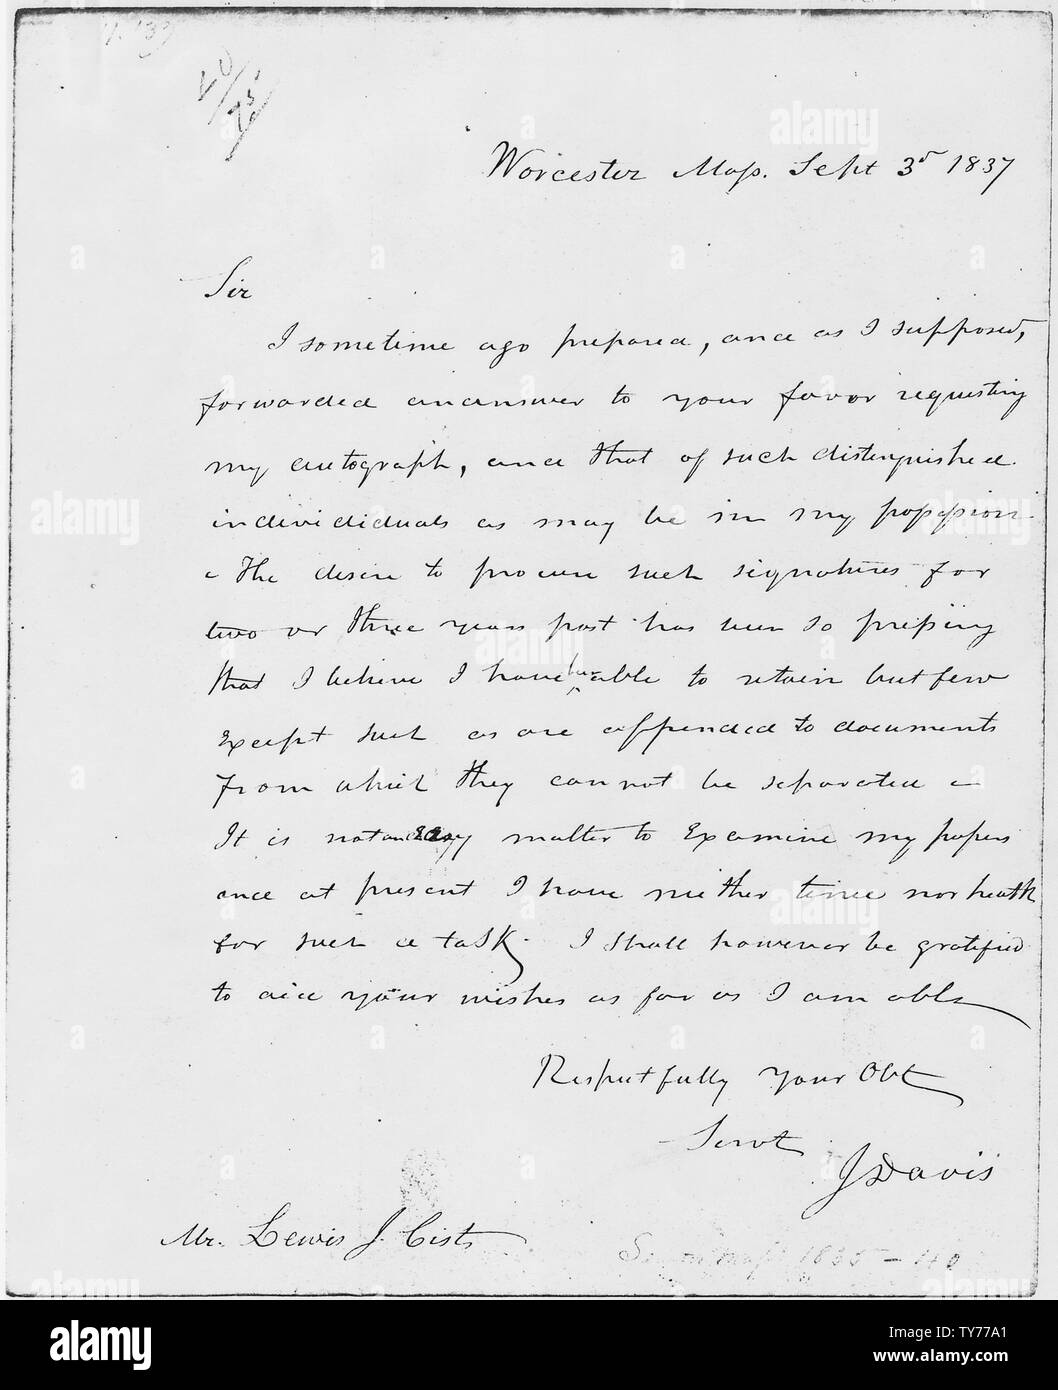 20/75
Worcester Mass. Sept 3d 1837
Sir
I sometime ago prepared, and as I supposed,
forwarded an answer to your favor requesting
my autograph, and that of such distinguished
individiduals as may be in my possession
The desire to procure such signatures for
two or three years past has been so pressing
that I believe I have been able to retain but few
Except such as are appended to documents
From which they cannot be separated
It is not an easy matter to Examine my papers
and at present I have neither time nor health
for such a task. I shall however be gratified
to aid your wishes as far as I am able
Respectfully your Obt
Servt
J Davis
Mr. Lewis J. Cist
1835-40
alamy
Image ID: TY77A1
www.alamy.com